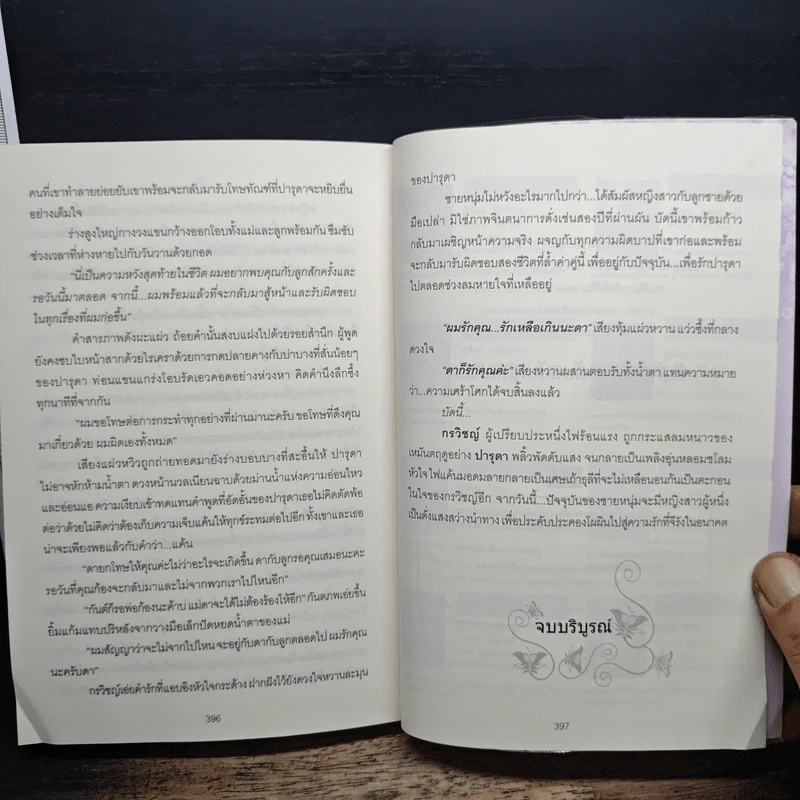 คนที่เขาทำลายย่อยยับเขาพร้อมจะกลับมารับโทษทัณฑ์ที่ปารุดาจะหยิบยื่น
อย่างเต็มใจ
ร่างสูงใหญ่กางวงแขนกว้างออกโอบทั้งแม่และลูกพร้อมกัน ซึมซับ
ช่วงเวลาที่ห่างหายไปกับวันวานด้วยกอด
“นี่เป็นความหวังสุดท้ายในชีวิต ผมอยากพบคุณกับลูกสักครั้งและ
รอวันนี้มาตลอด จากนี้...ผมพร้อมแล้วที่จะกลับมาสู้หน้าและรับผิดชอบ
ในทุกเรื่องที่ผมก่อขึ้น”
คำสารภาพดังผะแผ่ว ถ้อยคำนั้นสงบแฝงไปด้วยรอยสำนึก ผู้พูด
ยังคงซบใบหน้าสากด้วยไรเคราด้วยการกดปลายคางกับบ่าบางที่สั่นน้อยๆ
ของปารุดา ท่อนแขนแกร่งโอบรัดเอวคอดอย่างห่วงหา คิดคำนึงลึกซึ้ง
ทุกนาทีที่จากกัน
“ผมขอโทษต่อการกระทำทุกอย่างที่ผ่านมานะครับ ขอโทษที่ดึงคุณ
มาเกี่ยวด้วย ผมผิดเองทั้งหมด”
เสียงแผ่วหวิวถูกถ่ายทอดมายังร่างบอบบางที่สะอื้นไห้ ปารุดา
ไม่อาจหักห้ามน้ำตา ดวงหน้านวลเนียนฉาบด้วยม่านน้ำแห่งความอ่อนไหว
และอ่อนแอ ความเงียบเข้าทดแทนคำพูดที่อัดอั้นของปารุดาเธอไม่คิดตัดพ้อ
ต่อว่าด้วยไม่คิดว่าต้องเก็บความเจ็บแค้นให้ทุกข์ระทมต่อไปอีก ทั้งเขาและเธอ
น่าจะเพียงพอแล้วกับคำว่า...แค้น
“ดายกโทษให้คุณค่ะไม่ว่าอะไรจะเกิดขึ้น ดากับลูกรอคุณเสมอนะคะ
รอวันที่คุณก้องจะกลับมาและไม่จากพวกเราไปไหนอีก”
“กันต์ก็รอพ่อก้องนะค้าบ แม่ดาจะได้ไม่ต้องร้องไห้อีก” กันตภพเอ่ยขึ้น
ยิ้มแก้มแทบปริหลังจากวางมือเล็กปัดหยดน้ำตาของแม่
“ผมสัญญาว่าจะไม่จากไปไหน จะอยู่กับดากับลูกตลอดไป ผมรักคุณ
นะครับดา”
กรวิชญ์เอ่ยคำรักที่แอบอิงหัวใจกระด้าง ฝากฝังไว้ยังดวงใจหวานละมุน
396
ของปารุดา
ชายหนุ่มไม่หวังอะไรมากไปกว่า...ได้สัมผัสหญิงสาวกับลูกชายด้วย
มือเปล่า มิใช่ภาพจินตนาการดั่งเช่นสองปีที่ผ่านผัน บัดนี้เขาพร้อมก้าว
กลับมาเผชิญหน้าความจริง ผจญกับทุกความผิดบาปที่เขาก่อและพร้อม
จะกลับมารับผิดชอบสองชีวิตที่ล้ำค่าคู่นี้ เพื่ออยู่กับปัจจุบัน...เพื่อรักปารุดา
ไปตลอดช่วงลมหายใจที่เหลืออยู่
“ผมรักคุณ...รักเหลือเกินนะดา” เสียงทุ้มแผ่วหวาน แว่วซึ้งที่กลาง
ดวงใจ
“ดาก็รักคุณค่ะ” เสียงหวานผสานตอบรับทั้งน้ำตา แทนความหมาย
ว่า...ความเศร้าโศกได้จบสิ้นลงแล้ว
บัดนี้...
กรวิชญ์ ผู้เปรียบประหนึ่งไฟร้อนแรง ถูกกระแสลมหนาวของ
เหมันตฤดูอย่าง ปารุดา พลิ้วพัดดับแสง จนกลายเป็นเพลิงอุ่นหลอมชโลม
หัวใจ ไฟแค้นมอดมลายกลายเป็นเศษเถ้าธุลีที่จะไม่เหลือนอนก้นเป็นตะกอน
ในใจของกรวิชญ์อีก จากวันนี้...ปัจจุบันของชายหนุ่มจะมีหญิงสาวผู้หนึ่ง
เป็นดั่งแสงสว่างนำทาง เพื่อประคับประคองโผผินไปสู่ความรักที่จีรังในอนาคต
จบบริบูรณ์
397